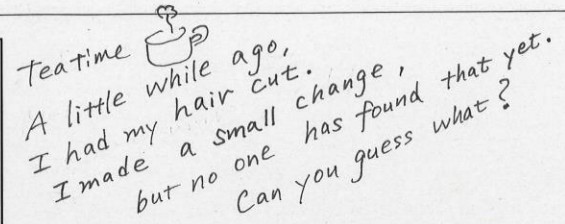 Teatime
A little while ago,
I had my hair cut.
I made a small change,
but no one has found that yet.
Can you guess what?